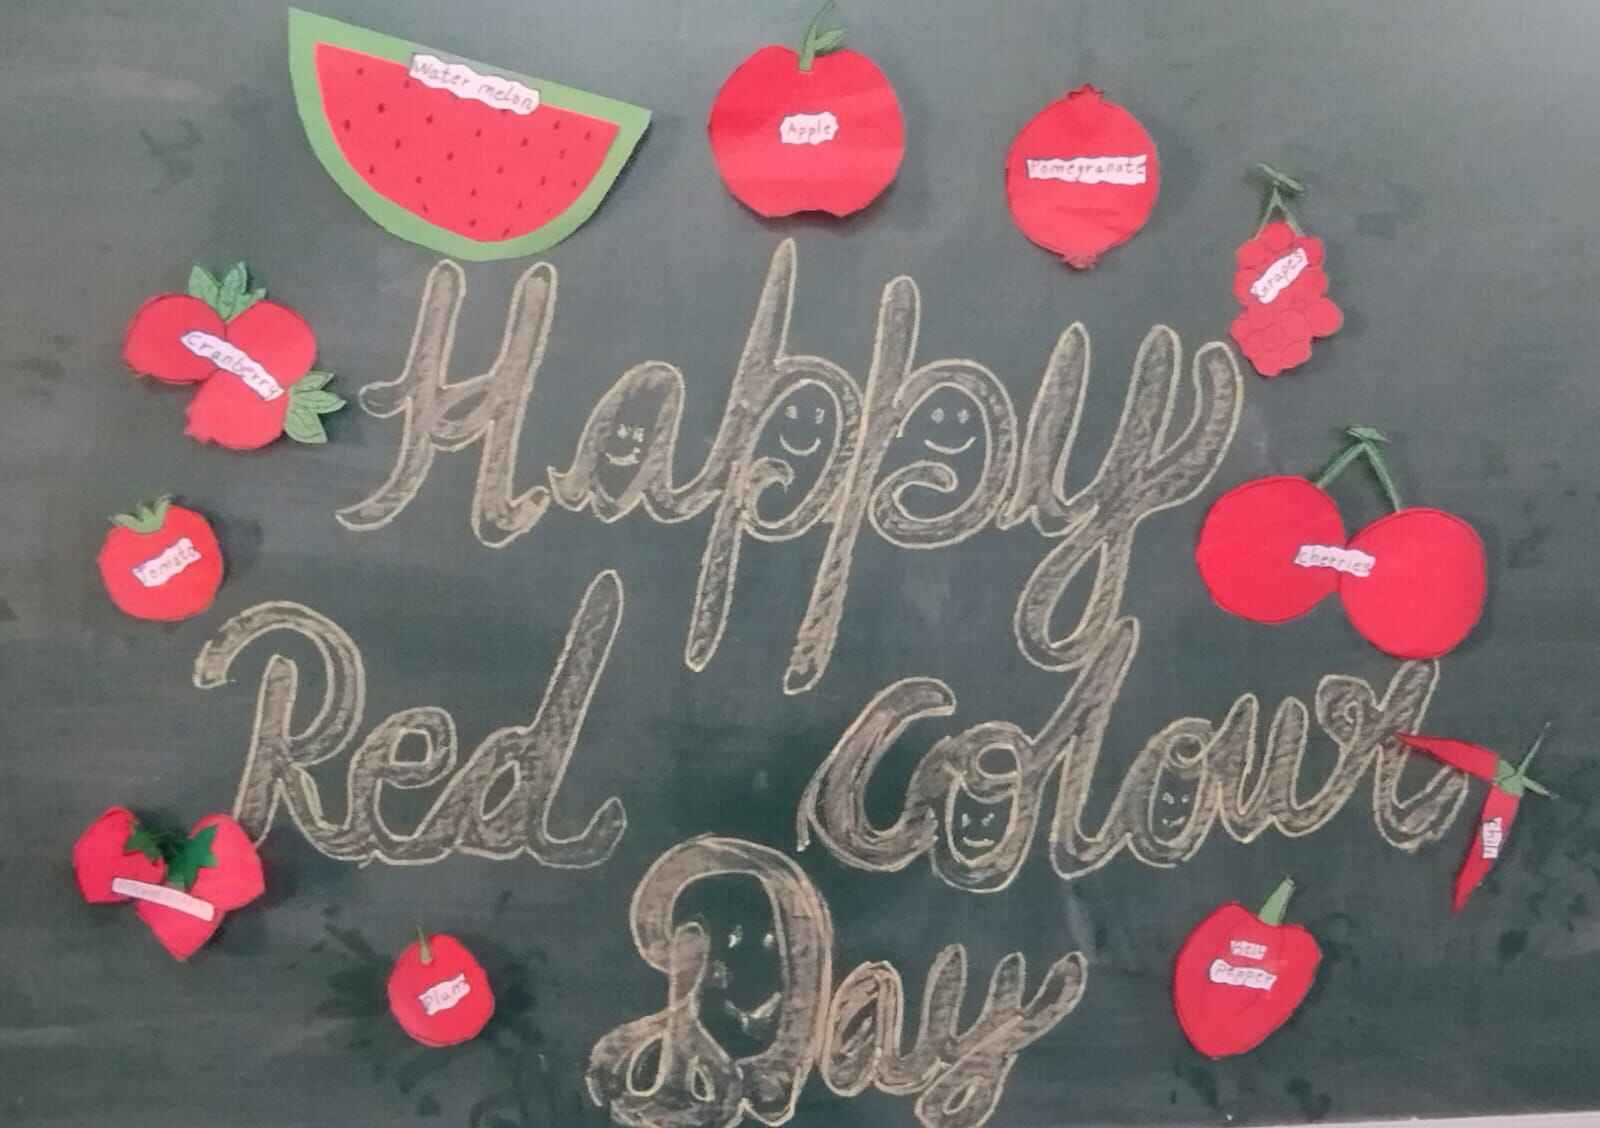 Water melon
Apple
Pomegranate
Grapes
cranberry
Happy
cherries
Tomato
Red colour
Plum
Day
Pepper